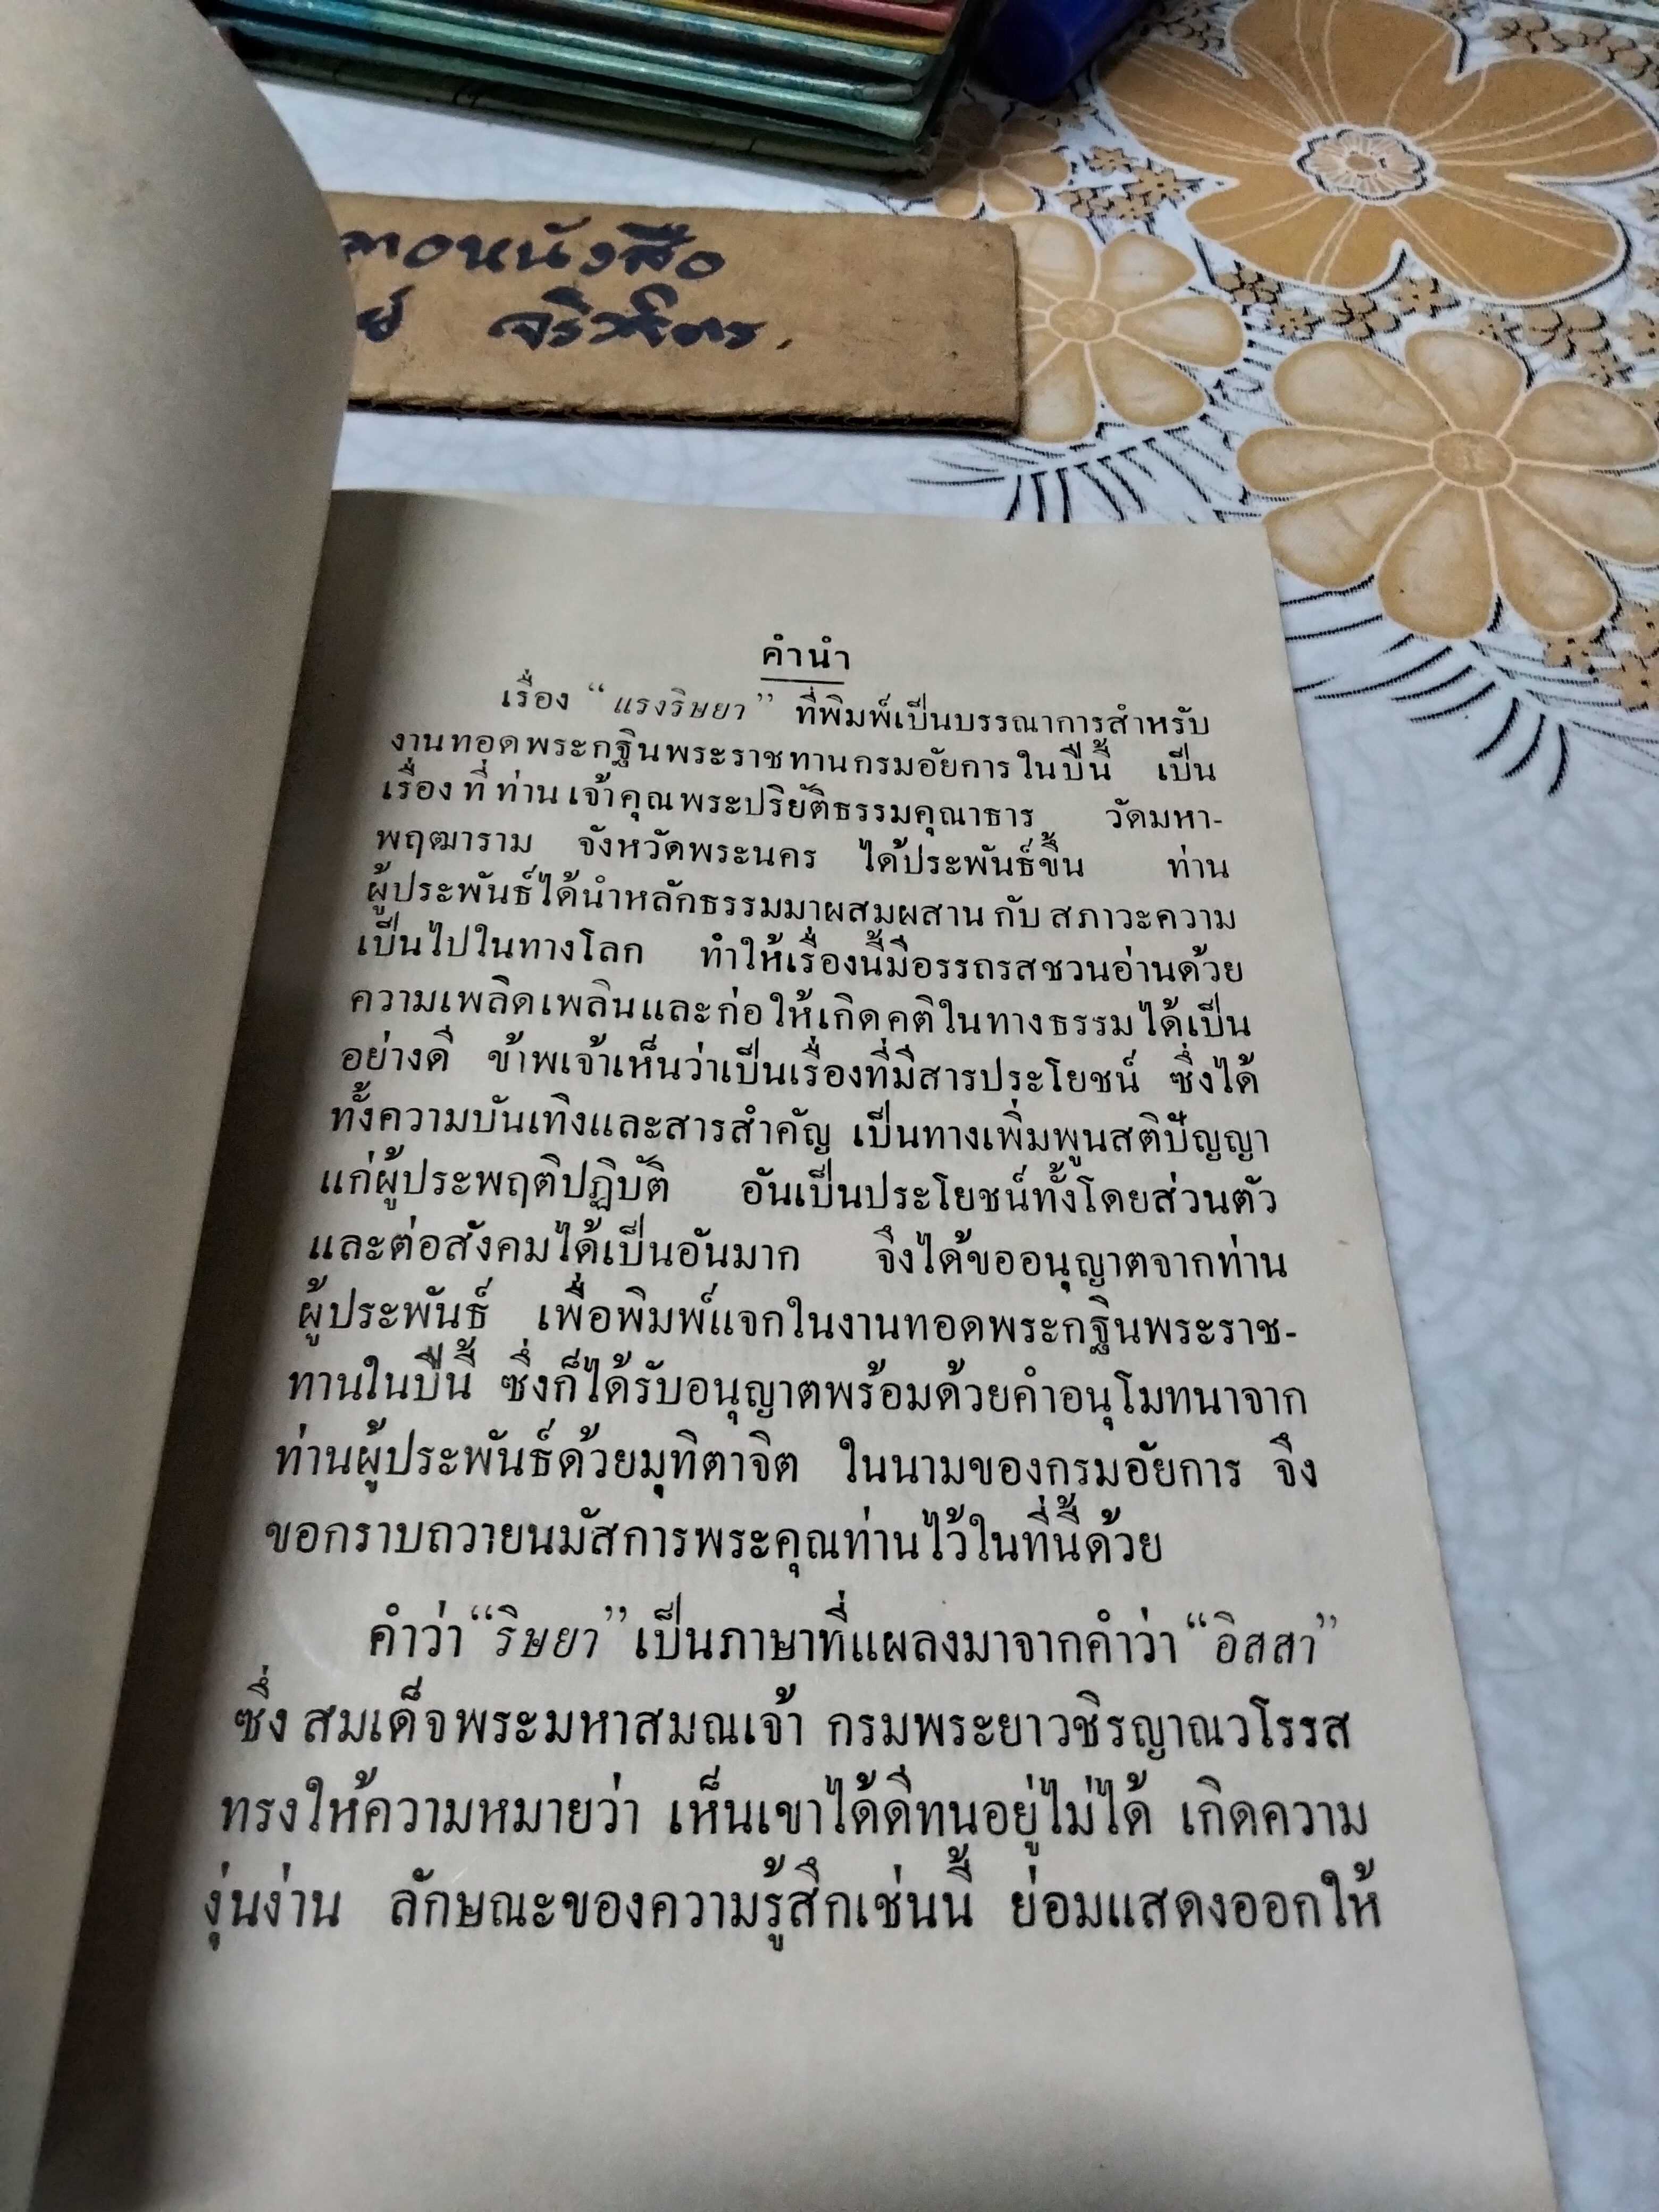 หนังสือ
คำนำ
เรื่อง “แรงริษยา” ที่พิมพ์เป็นบรรณาการสำหรับ
งานทอดพระกฐินพระราชทานกรมอัยการในปีนี้ เป็น
เรื่องที่ท่านเจ้าคุณพระปริยัติธรรมคุณาธาร วัดมหา-
พฤฒาราม จังหวัดพระนคร ได้ประพันธ์ขึ้น ท่าน
ผู้ประพันธ์ได้นำหลักธรรมมาผสมผสาน กับ สภาวะความ
เป็นไปในทางโลก ทำให้เรื่องนี้มีอรรถรสชวนอ่านด้วย
ความเพลิดเพลินและก่อให้เกิดคติในทางธรรมได้เป็น
อย่างดี ข้าพเจ้าเห็นว่าเป็นเรื่องที่มีสารประโยชน์ ซึ่งได้
ทั้งความบันเทิงและสารสำคัญ เป็นทางเพิ่มพูนสติปัญญา
แก่ผู้ประพฤติปฏิบัติ อันเป็นประโยชน์ทั้งโดยส่วนตัว
และต่อสังคมได้เป็นอันมาก จึงได้ขออนุญาตจากท่าน
ผู้ประพันธ์ เพื่อพิมพ์แจกในงานทอดพระกฐินพระราช-
ทานในปีนี้ ซึ่งก็ได้รับอนุญาตพร้อมด้วยคำอนุโมทนาจาก
ท่านผู้ประพันธ์ด้วยมุทิตาจิต ในนามของกรมอัยการ จึง
ขอกราบถวายนมัสการพระคุณท่านไว้ในที่นี้ด้วย
คำว่า “ริษยา” เป็นภาษาที่แผลงมาจากคำว่า “อิสสา”
ซึ่ง สมเด็จพระมหาสมณเจ้า กรมพระยาวชิรญาณวโรรส
ทรงให้ความหมายว่า เห็นเขาได้ดีทนอยู่ไม่ได้ เกิดความ
งุ่นง่าน ลักษณะของความรู้สึกเช่นนี้ ย่อมแสดงออกให้